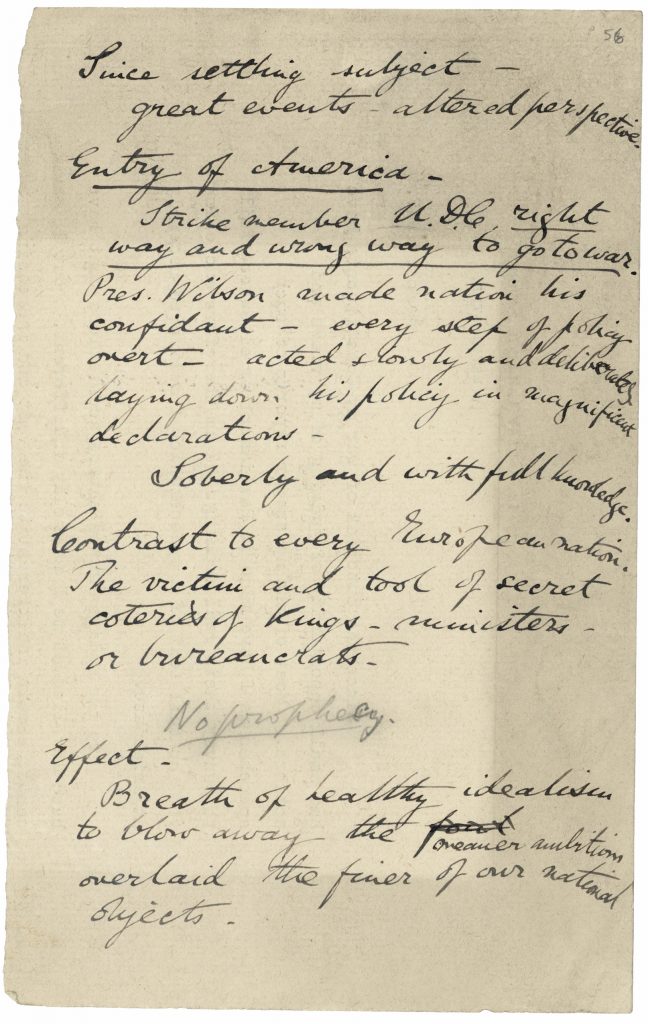 56
Since settling subject –
great events – altered perspective.
Entry of America –
Strike member U.D.C. right
way and wrong way to go to war.
Pres. Wilson made nation his
confidant – every step of policy
overt – acted slowly and deliberately
laying down his policy in magnificent
declarations –
Soberly and with full knowledge.
Contrast to every European nation.
The victim and tool of secret
coteries of Kings – ministers –
or bureaucrats –
No prophecy.
Effect –
Breath of healthy idealism
to blow away the
meaner ambitions
overlaid the finer of our national
objects –